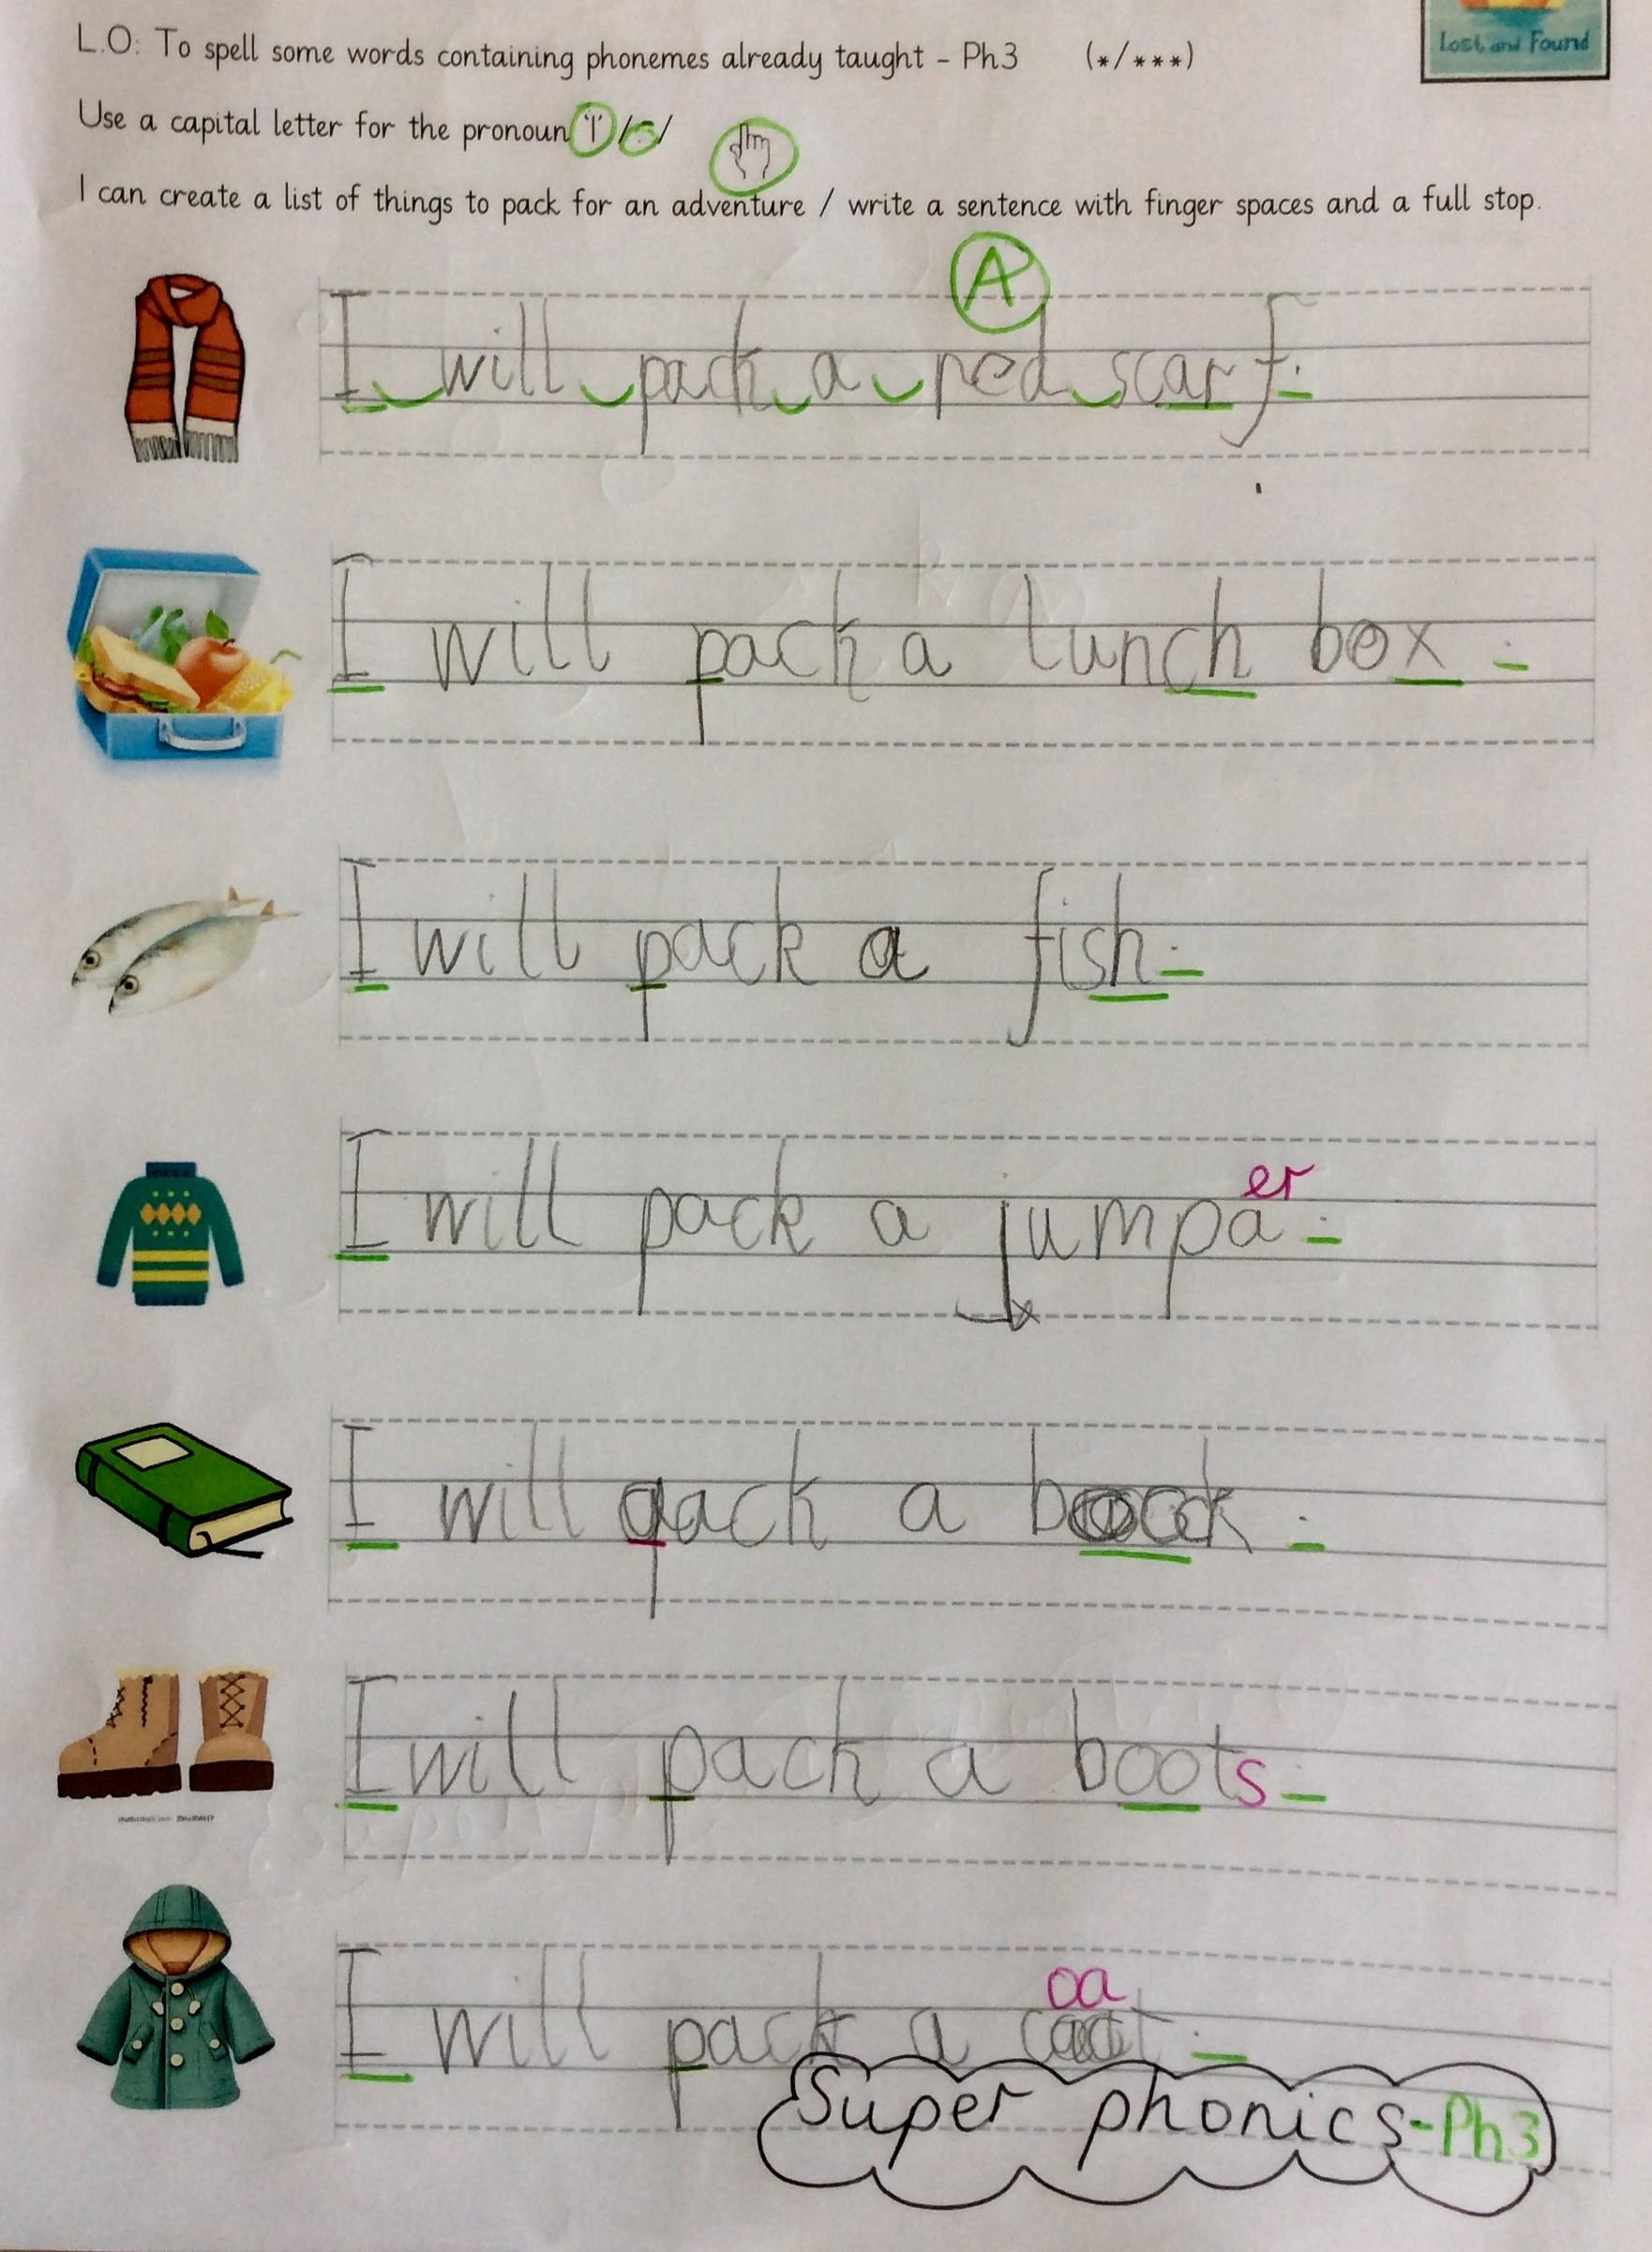 Lost and Found
L.O: To spell some words containing phonemes already taught - Ph3 (*/***)
Use a capital letter for the pronoun 'I' /./
I can create a list of things to pack for an adventure / write a sentence with finger spaces and a full stop.
A
I will pack a red scarf.
I will pack a lunch box.
I will pack a fish.
er
I will pack a jumpa.
I will qack a book.
I will pack a boots.
oa
I will pack a
Super phonics-Ph3